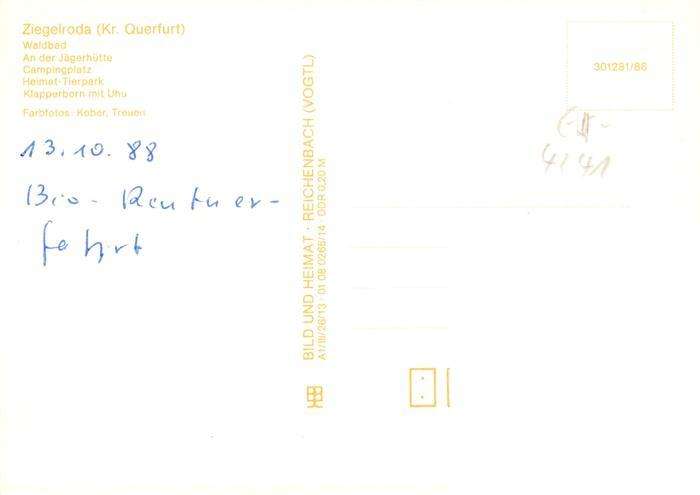 Ziegelroda (Kr. Querfurt)
Waldbad
An der Jägerhütte
Campingplatz
Heimat-Tierpark
Klapperborn mit Uhu
Farbfotos: Kober, Treuen
13.10.88
Bio-Rentner-
fahrt
BILD UND HEIMAT · REICHENBACH (VOGTL)
A1/III/26/13 · 01 08 0266/14 · DDR 0,20 M
301281/86
4141